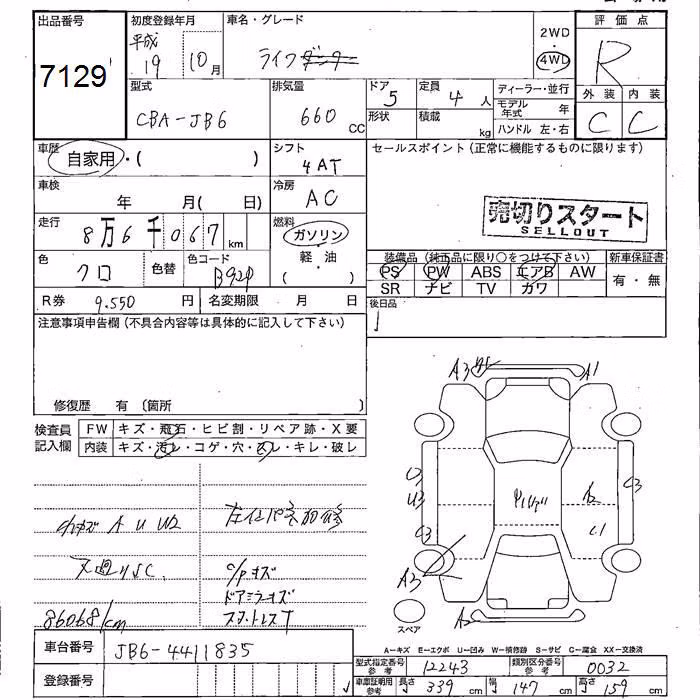 出品番号
7129
初度登録年月
平成
19 10月
車名・グレード
ライフ
2WD
・
4WD
評価点
R
外装 内装
C C
型式
CBA-JB6
排気量
660 CC
ドア
5
形状
定員
4 人
積載
kg
ディーラー・並行
モデル年式 年
ハンドル 左・右
車歴
自家用・( )
シフト
4AT
セールスポイント(正常に機能するものに限ります)
売切りスタート
SELLOUT
車検
年 月( 日)
冷房
AC
走行
8万6千067km
燃料
ガソリン
・
軽・油
( )
色
クロ
色替
色コード
B92P
装備品(純正品に限り○をつけて下さい)
PS PW ABS エアB AW
SR ナビ TV カワ
新車保証書
有・無
R券 9.550 円
名変期限 月 日
後日品
注意事項申告欄(不具合内容等は具体的に記入して下さい)
修復歴 有 〔箇所
検査員記入欄
FW キズ・飛石・ヒビ割・リペア跡・X要
内装 キズ・汚レ・コゲ・穴・スレ・キレ・破レ
A U W2
ドアミラーキズ
86068/cm
A3
A1
U3
C3
C3
A2
C1
A3
A2
スペア
A−キズ E−エクボ U−凹み W−補修跡 S−サビ C−腐食 XX−交換済
車台番号
JB6-4411835
登録番号
型式指定番号参考 12243
類別区分番号参考 0032
車庫証明用参考 長さ 339 cm 幅 147 cm 高さ 159 cm